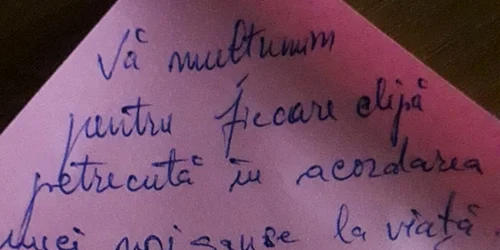 Vă multumim
pentru fiecare clipă
petrecută în acordarea
unei noi șanse la viață